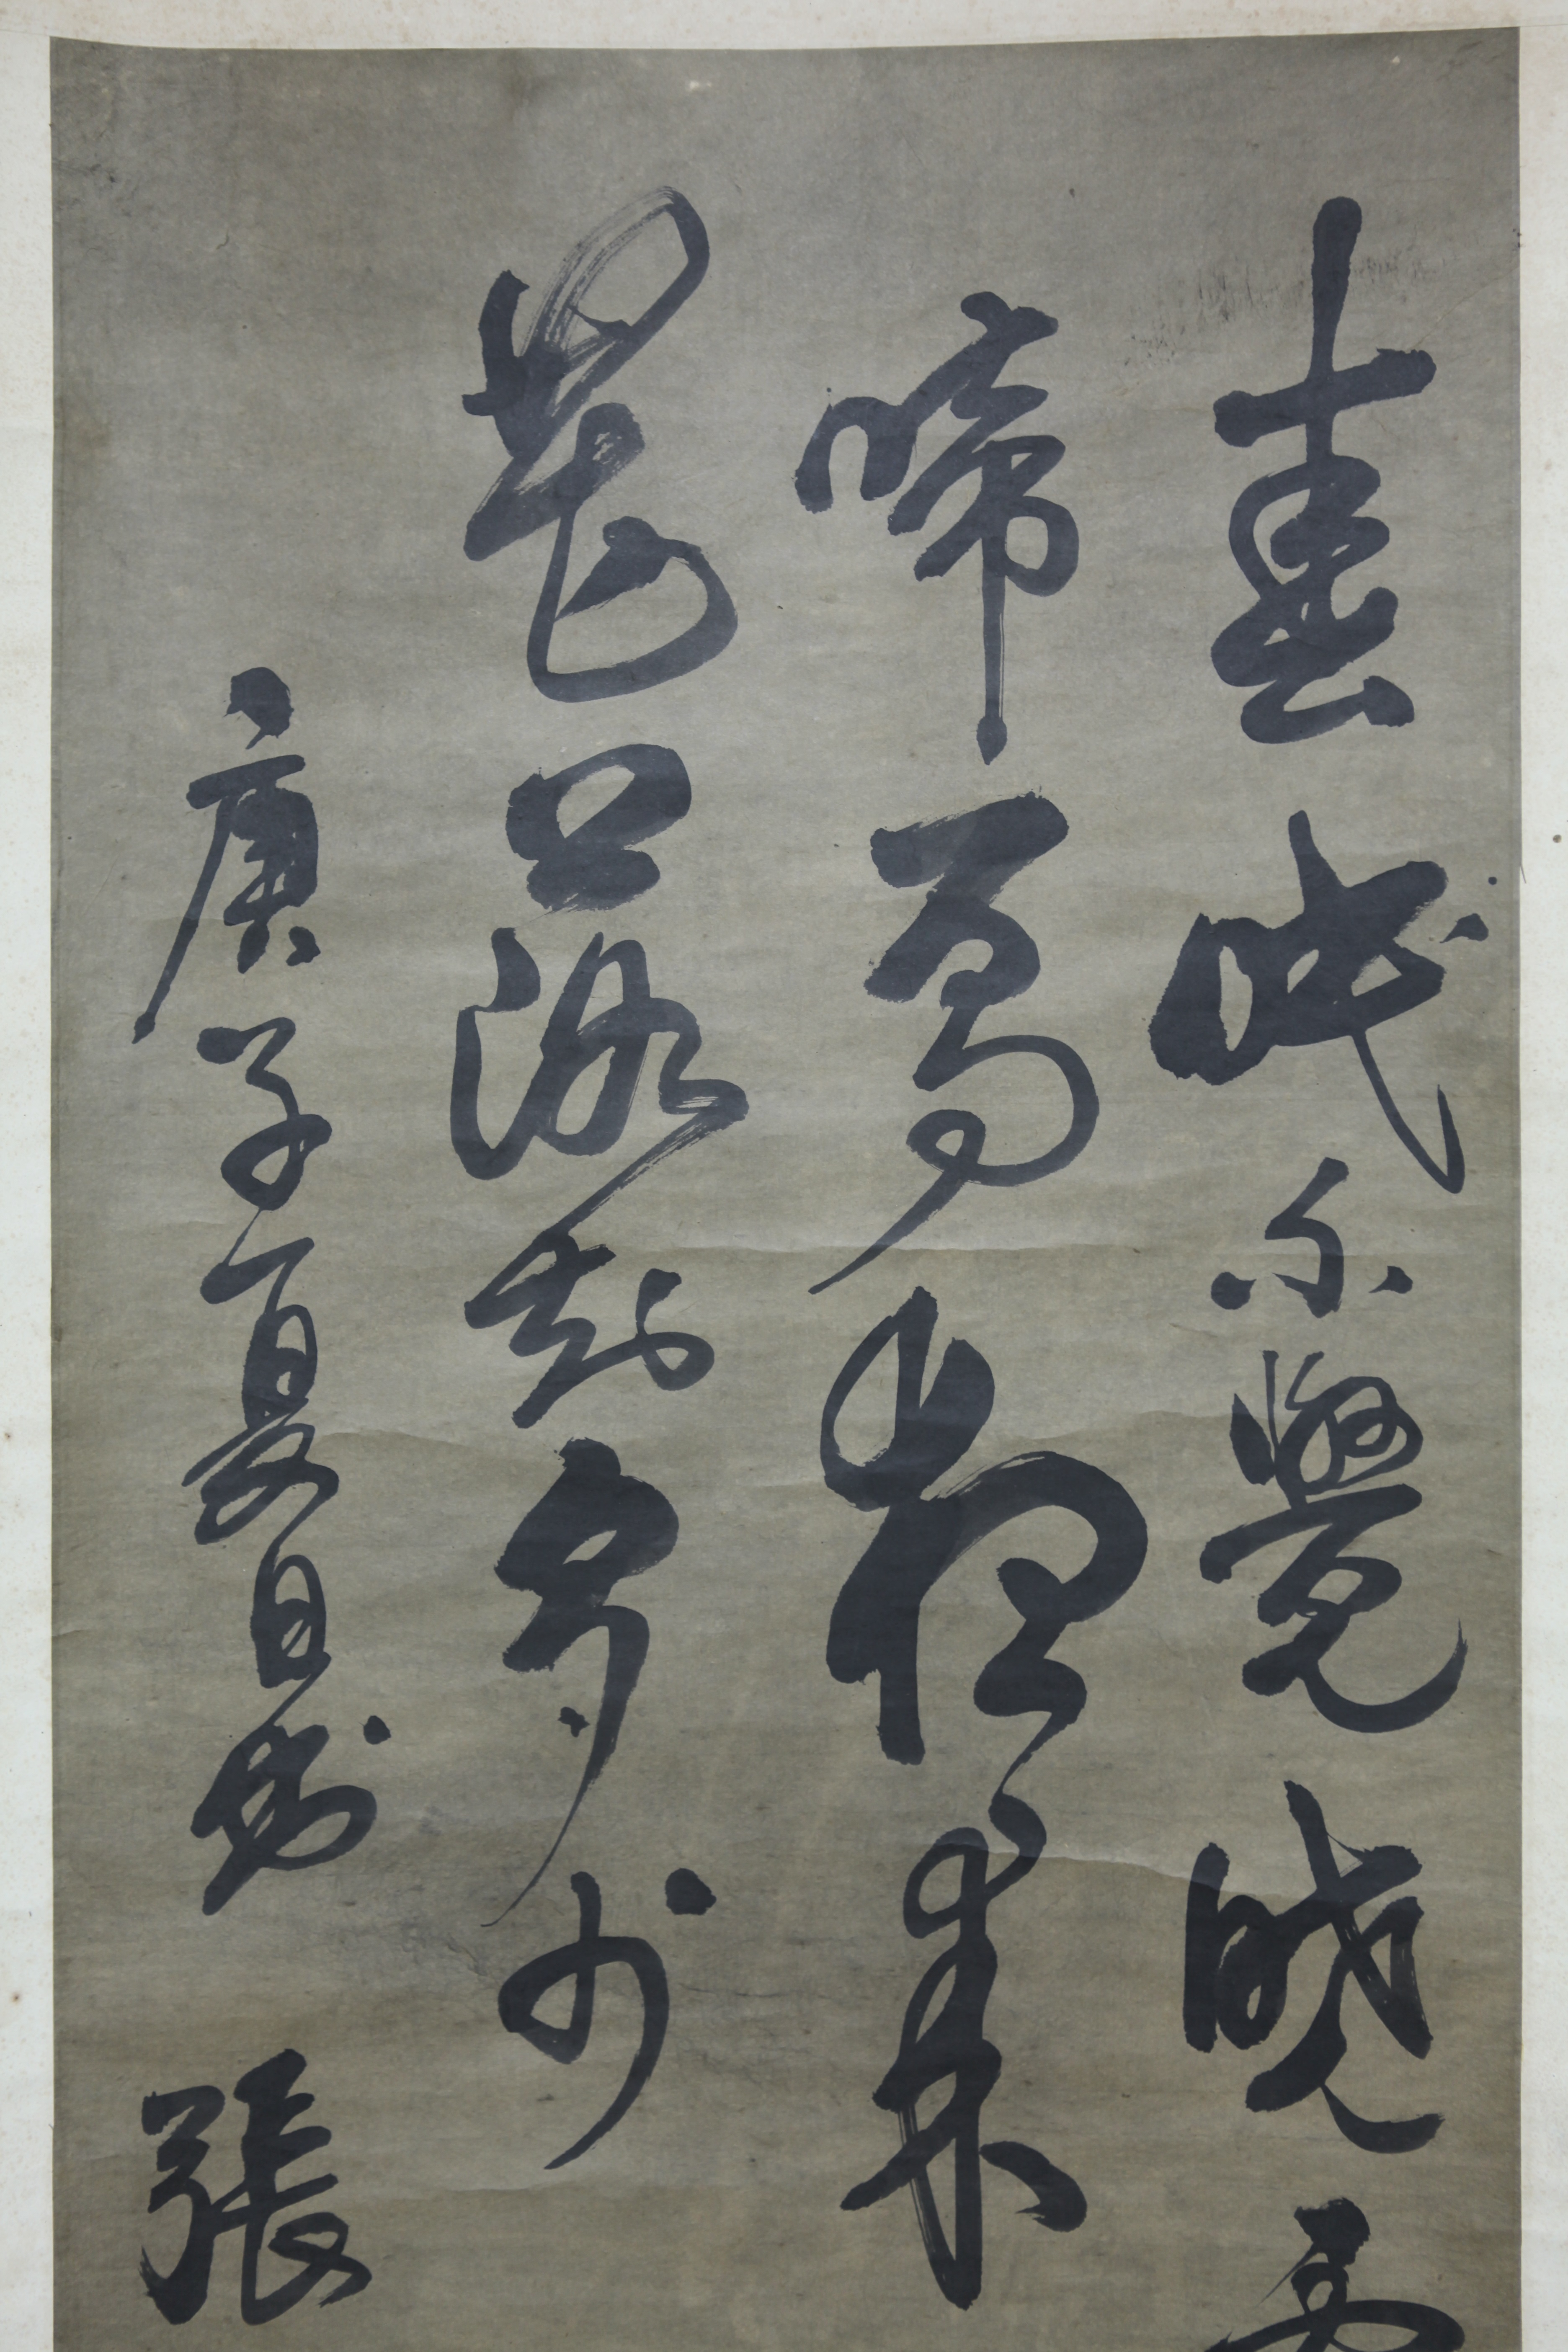 春眠不覺曉
啼鳥夜來
花落知多少
庚子夏日書 張